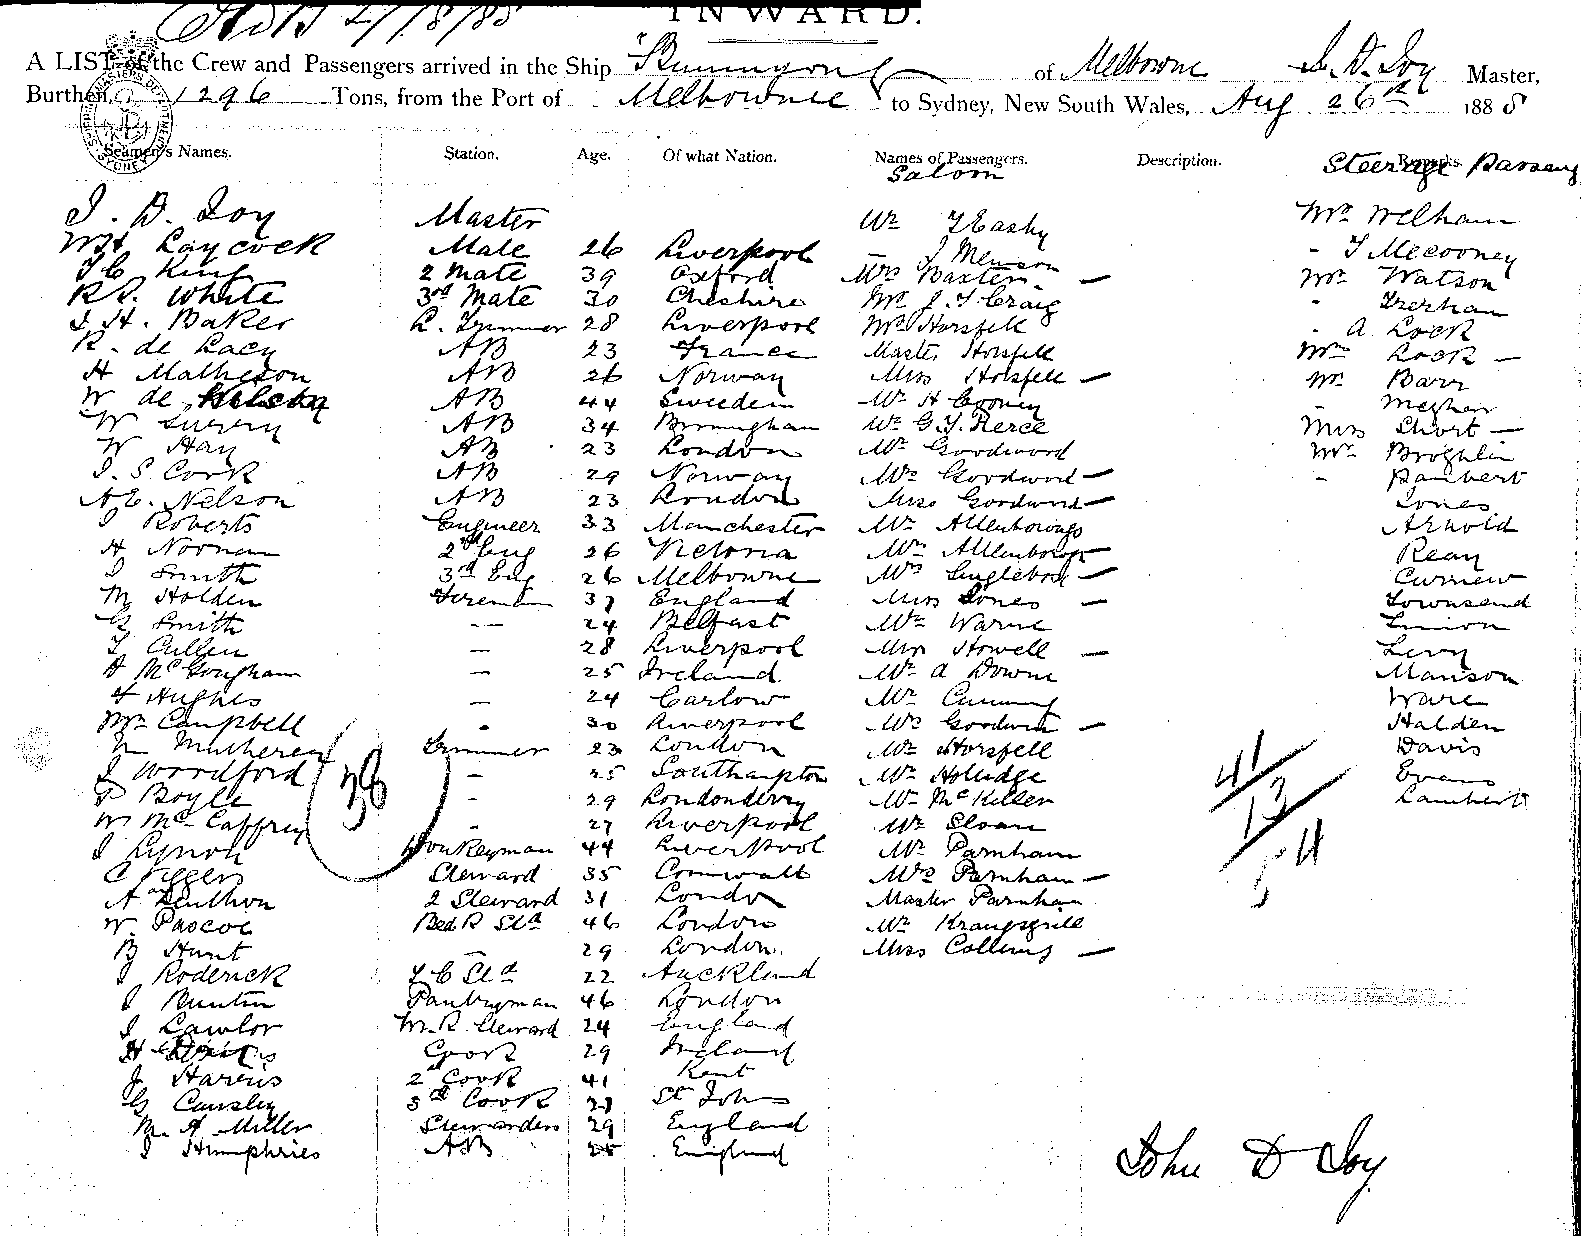 INWARD.
A LIST of the Crew and Passengers arrived in the Ship of Melbourne J. D. Joy Master,
Burthen, 1296 Tons, from the Port of Melbourne to Sydney, New South Wales, Aug 26th 1888
Seamen's Names. Station. Age. Of what Nation. Names of Passengers. Description. Remarks.
Saloon Steerage
J. D. Joy Master Mr T Easby Mr Welham
WH Laycock Mate 26 Liverpool J T Mecooney
King 2 Mate 39 Oxford Mrs Baxter — Mr Watson
White 3rd Mate 30 Cheshire Mr J. T Craig
J. H. Baker L. Trimmer 28 Liverpool Mr Horsfell A Lock
R. de Lacy AB 23 France Master Horsfell Mrs Lock —
A Matheson AB 26 Norway Miss Horsfell — Mr Barr
W de AB 44 Sweeden Mr H Cooney
W Surry AB 34 Birmingham Mr G. T. Pierce Miss Short —
W Hay AB 23 London Mr Goodword Mr
J. S Cork AB 29 Norway Mrs Goodword —
A. E. Nelson AB 23 London Miss Goodword — Jones
J Roberts Engineer 33 Manchester Mr Arnold
H Noonan 2nd Eng 26 Victoria Mrs — Reay
J Smith 3rd Eng 26 Melbourne Mrs — Curnew
M Holden Fireman 37 England Miss Jones — Townsend
G Smith — 24 Belfast Mr Warne
T Cullen — 28 Liverpool Miss Howell — Levy
— 25 Ireland Mr A Downe Manson
H Hughes — 24 Carlow Mr Cumming Ware
Wm Campbell 30 Liverpool Mrs Goodwin — Halden
Trimmer 23 London Mr Horsfell Davis
J Woodford - 25 Southampton Mr Holudge Evans
P Boyle - 29 Londonderry Mr McKiller Lambert
W McCaffrey - 27 Liverpool Mr Sloan
J Lynch Donkeyman 44 Liverpool Mr Parnham
Steward 35 Cornwall Mrs Parnham —
A 2 Steward 31 London Master Parnham
W. Pascoe Bed R Std 46 London Mr
B Hunt — 29 London Miss Collins —
J Roderick F C Std 22 Auckland
J Buntin Pantryman 46 London
J Lawlor M. R. Steward 24 England
H Cook 29 Ireland
J Harris 2nd Cook 41 Kent
G Causley 3rd Cook St Johns
M. A. Miller Stewardess 29 England
J Humphries AB England
38
41
13
54
John D Joy